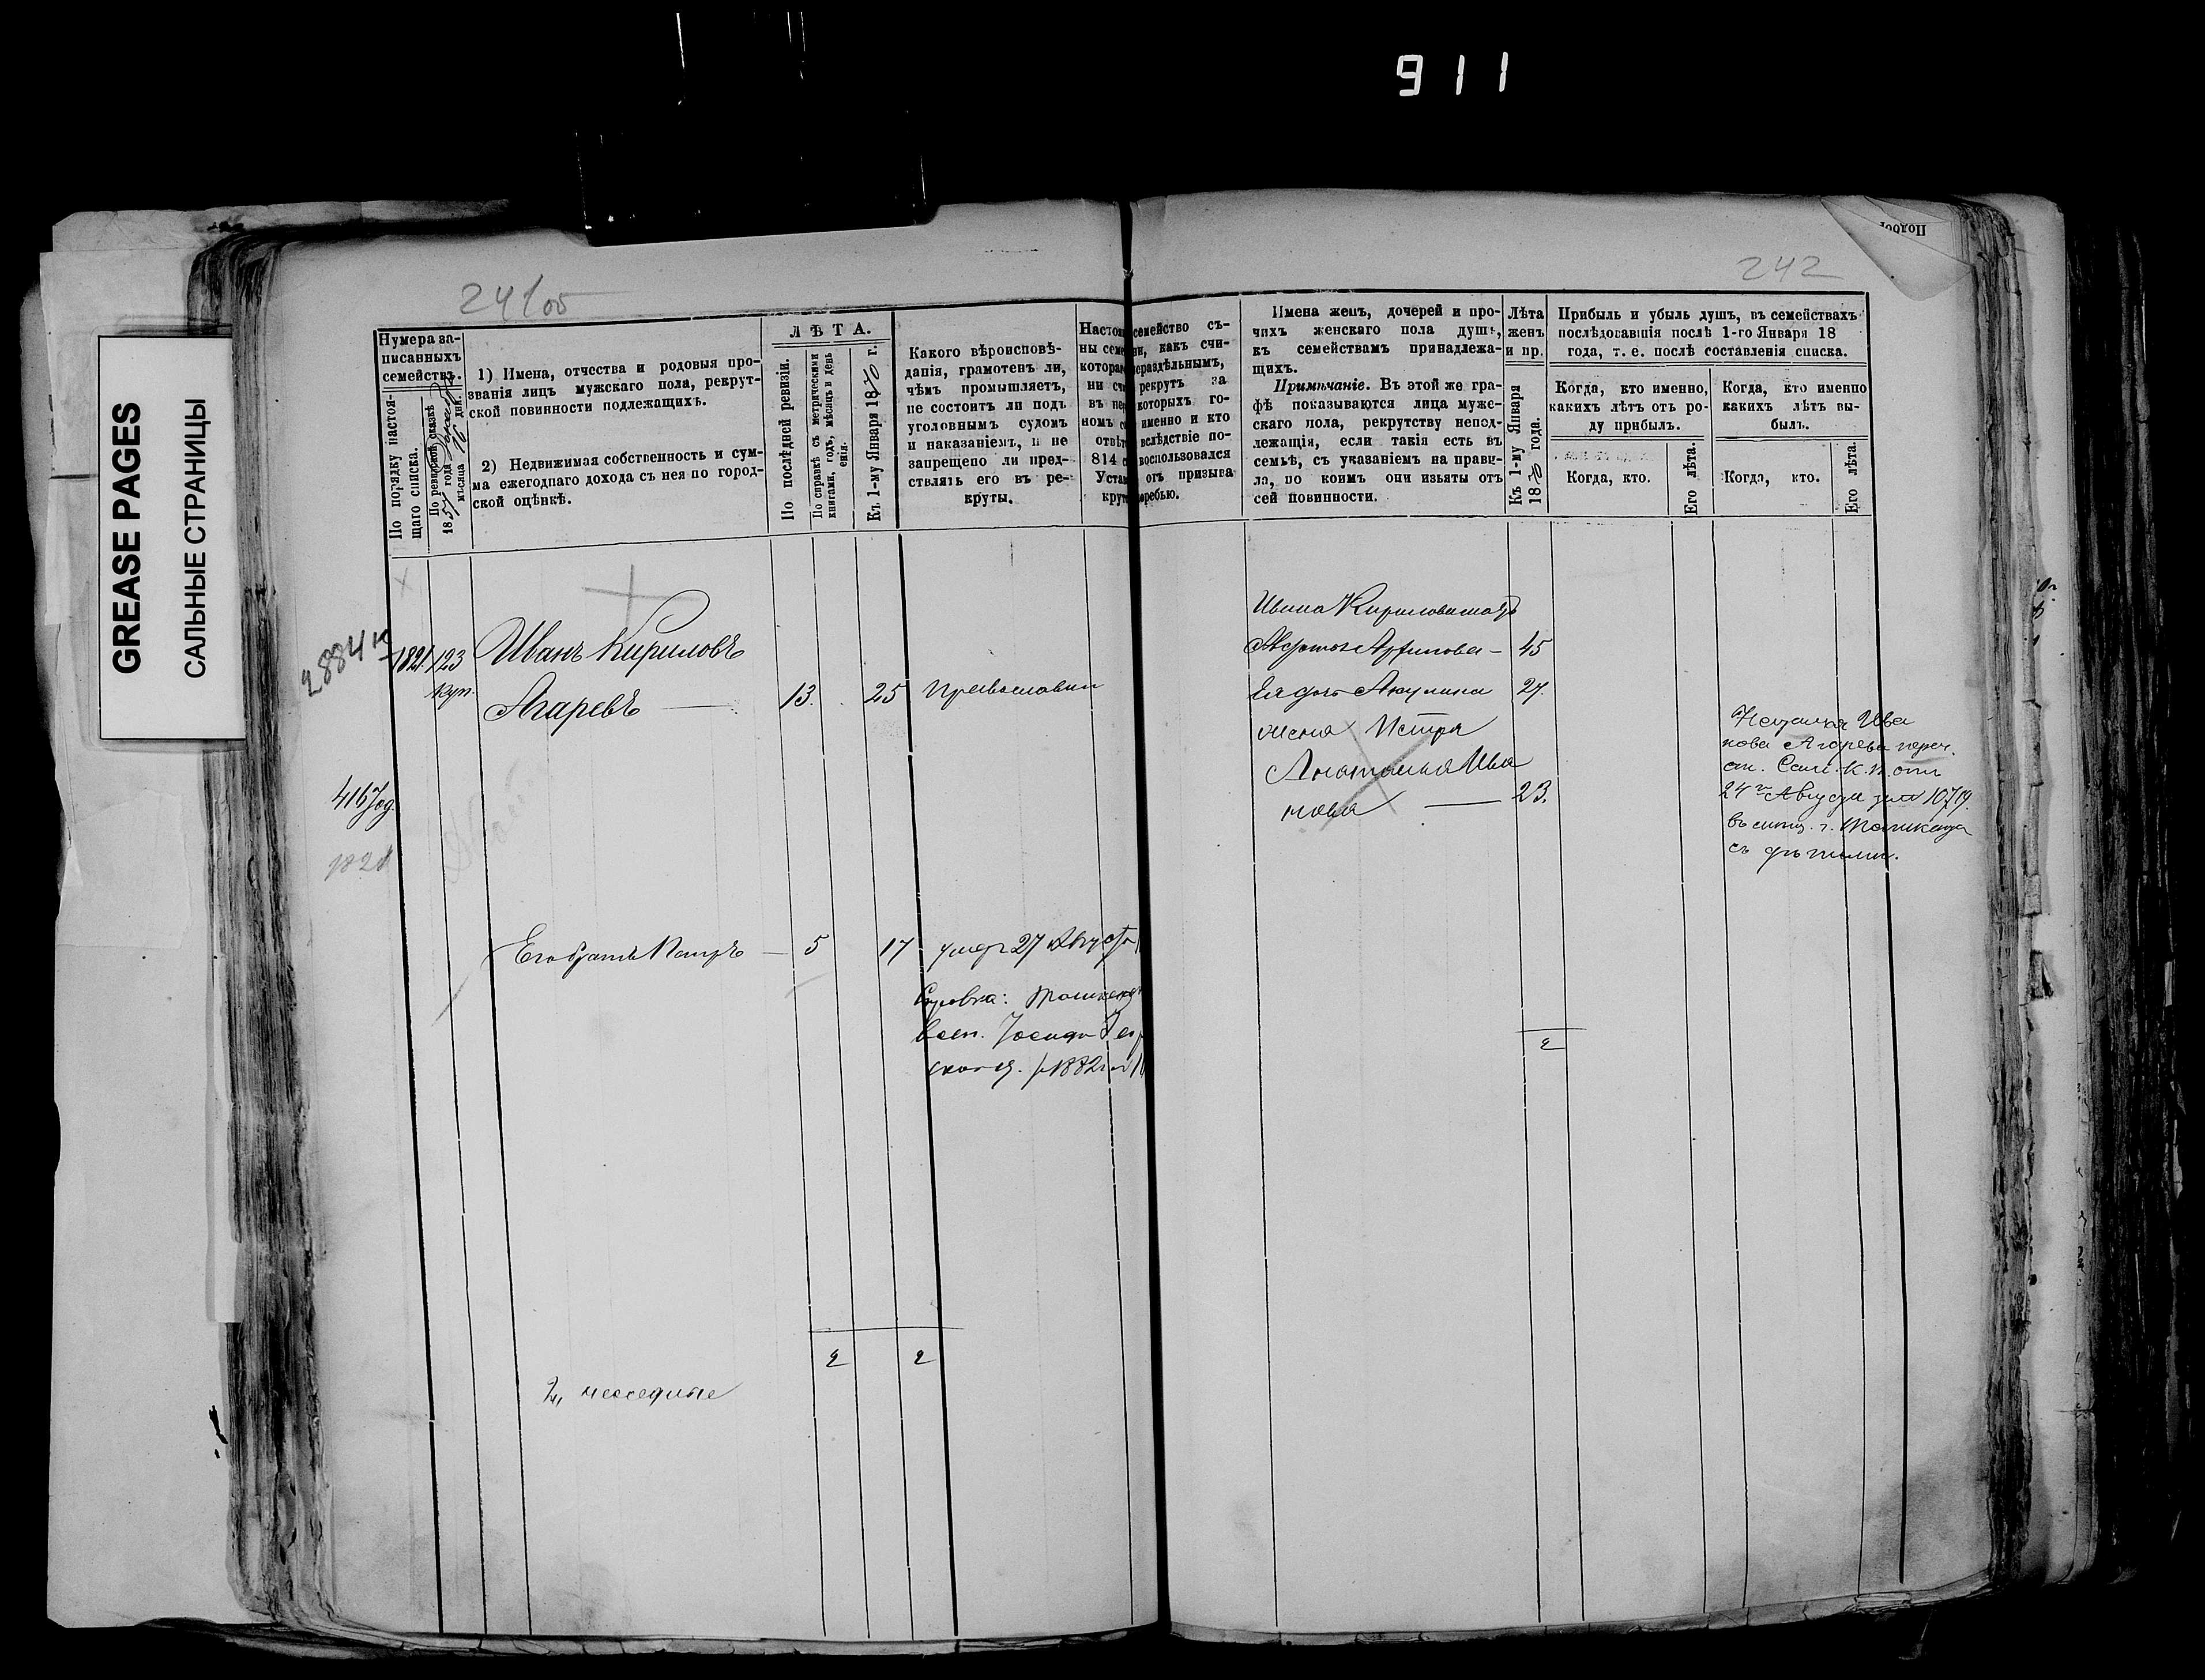 911
GREASE PAGES
САЛЬНЫЕ СТРАНИЦЫ
242
Нумера за-
писанныхъ
семействъ.
По порядку настоя-
щаго списка.
По ревизской сказкѣ
185 года
мѣсяца 16 дня.
1) Имена, отчества и родовыя про-
званія лицъ мужскаго пола, рекрут-
ской повинности подлежащихъ.
2) Недвижимая собственность и сум-
ма ежегоднаго дохода съ нея по город-
ской оцѣнкѣ.
ЛѢТА.
По послѣдней ревизіи.
По справкѣ съ метрическими
книгами, годъ, мѣсяцъ и день
енія.
Къ 1-му Января 1870 г.
Какого вѣроисповѣ-
данія, грамотенъ ли,
чѣмъ промышляетъ,
не состоитъ ли подъ
уголовнымъ судомъ
и наказаніемъ, и не
запрещено ли пред-
ствлять его въ ре-
круты.
семейство съ-
какъ счи-
рекрутъ за
которыхъ го-
именно и кто
вслѣдствіе по-
воспользовался
отъ призыва
Имена женъ, дочерей и про-
чихъ женскаго пола душъ,
къ семействамъ принадлежа-
щихъ.
Примѣчаніе. Въ этой же гра-
фѣ показываются лица муже-
скаго пола, рекрутству непод-
лежащія, если такія есть въ
семьѣ, съ указаніемъ на прави-
ла, по коимъ они изъяты отъ
сей повинности.
Лѣта
женъ
и пр.
Къ 1-му Января
1870 года.
Прибыль и убыль душъ, въ семействахъ
послѣдовавшія послѣ 1-го Января 18
года, т. е. послѣ составленія списка.
Когда, кто именно,
какихъ лѣтъ отъ ро-
ду прибылъ.
Когда, кто.
Его лѣта.
Когда, кто именно
какихъ лѣтъ вы-
былъ.
Когда, кто.
Его лѣта.
2884
1821. 123 Иванъ Кириловъ
Куп. Агаревъ — 13. 25 православн
416
1821
Его братъ Петръ — 5 17 умеръ 27 Августа
Справка:
1882
2 2
Ивана Кирилова
45
Ея дочь Акулина 27.
жена Петра
Наталья Ива
нова — 23.
2
Наталья Ива
нова Агарева переч.
24 Августа за № 10719.
г. Ташкента
съ дѣтьми.